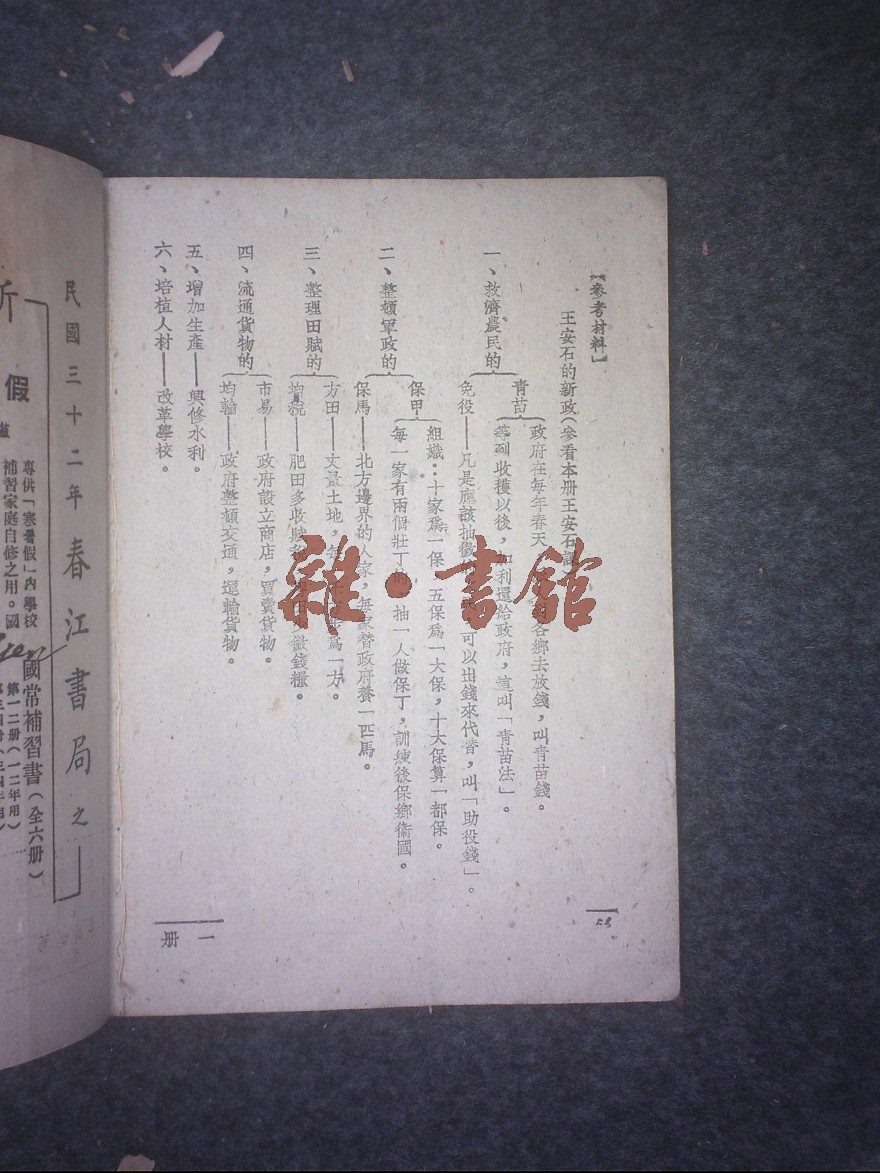 【參考材料】
王安石的新政(參看本册王安石
一、救濟農民的
青苗
政府在每年春天 各鄉去放錢,叫青苗錢。
等到收穫以後,加利還給政府,這叫「青苗法」。
免役——凡是應該抽 可以出錢來代替,叫「助役錢」。
二、整頓軍政的
保甲
組織:十家爲一保,五保爲一大保,十大保算一都保。
每一家有兩個壯丁的 抽一人做保丁,訓練後保鄉衞國。
保馬——北方邊界的人家,每家替政府養一匹馬。
三、整理田賦的
方田——丈量土地, 爲一方。
均稅——肥田多收賦 徵錢糧。
四、流通貨物的
市易——政府設立商店,買賣貨物。
均輸——政府整頓交通,運輸貨物。
五、增加生產——興修水利。
六、培植人材——改革學校。
一册
雜·書館
民國三十二年春江書局之
新
假
專供「寒暑假」內學校
補習家庭自修之用。國
國常補習書(全六册)
第一二册(一二年用)